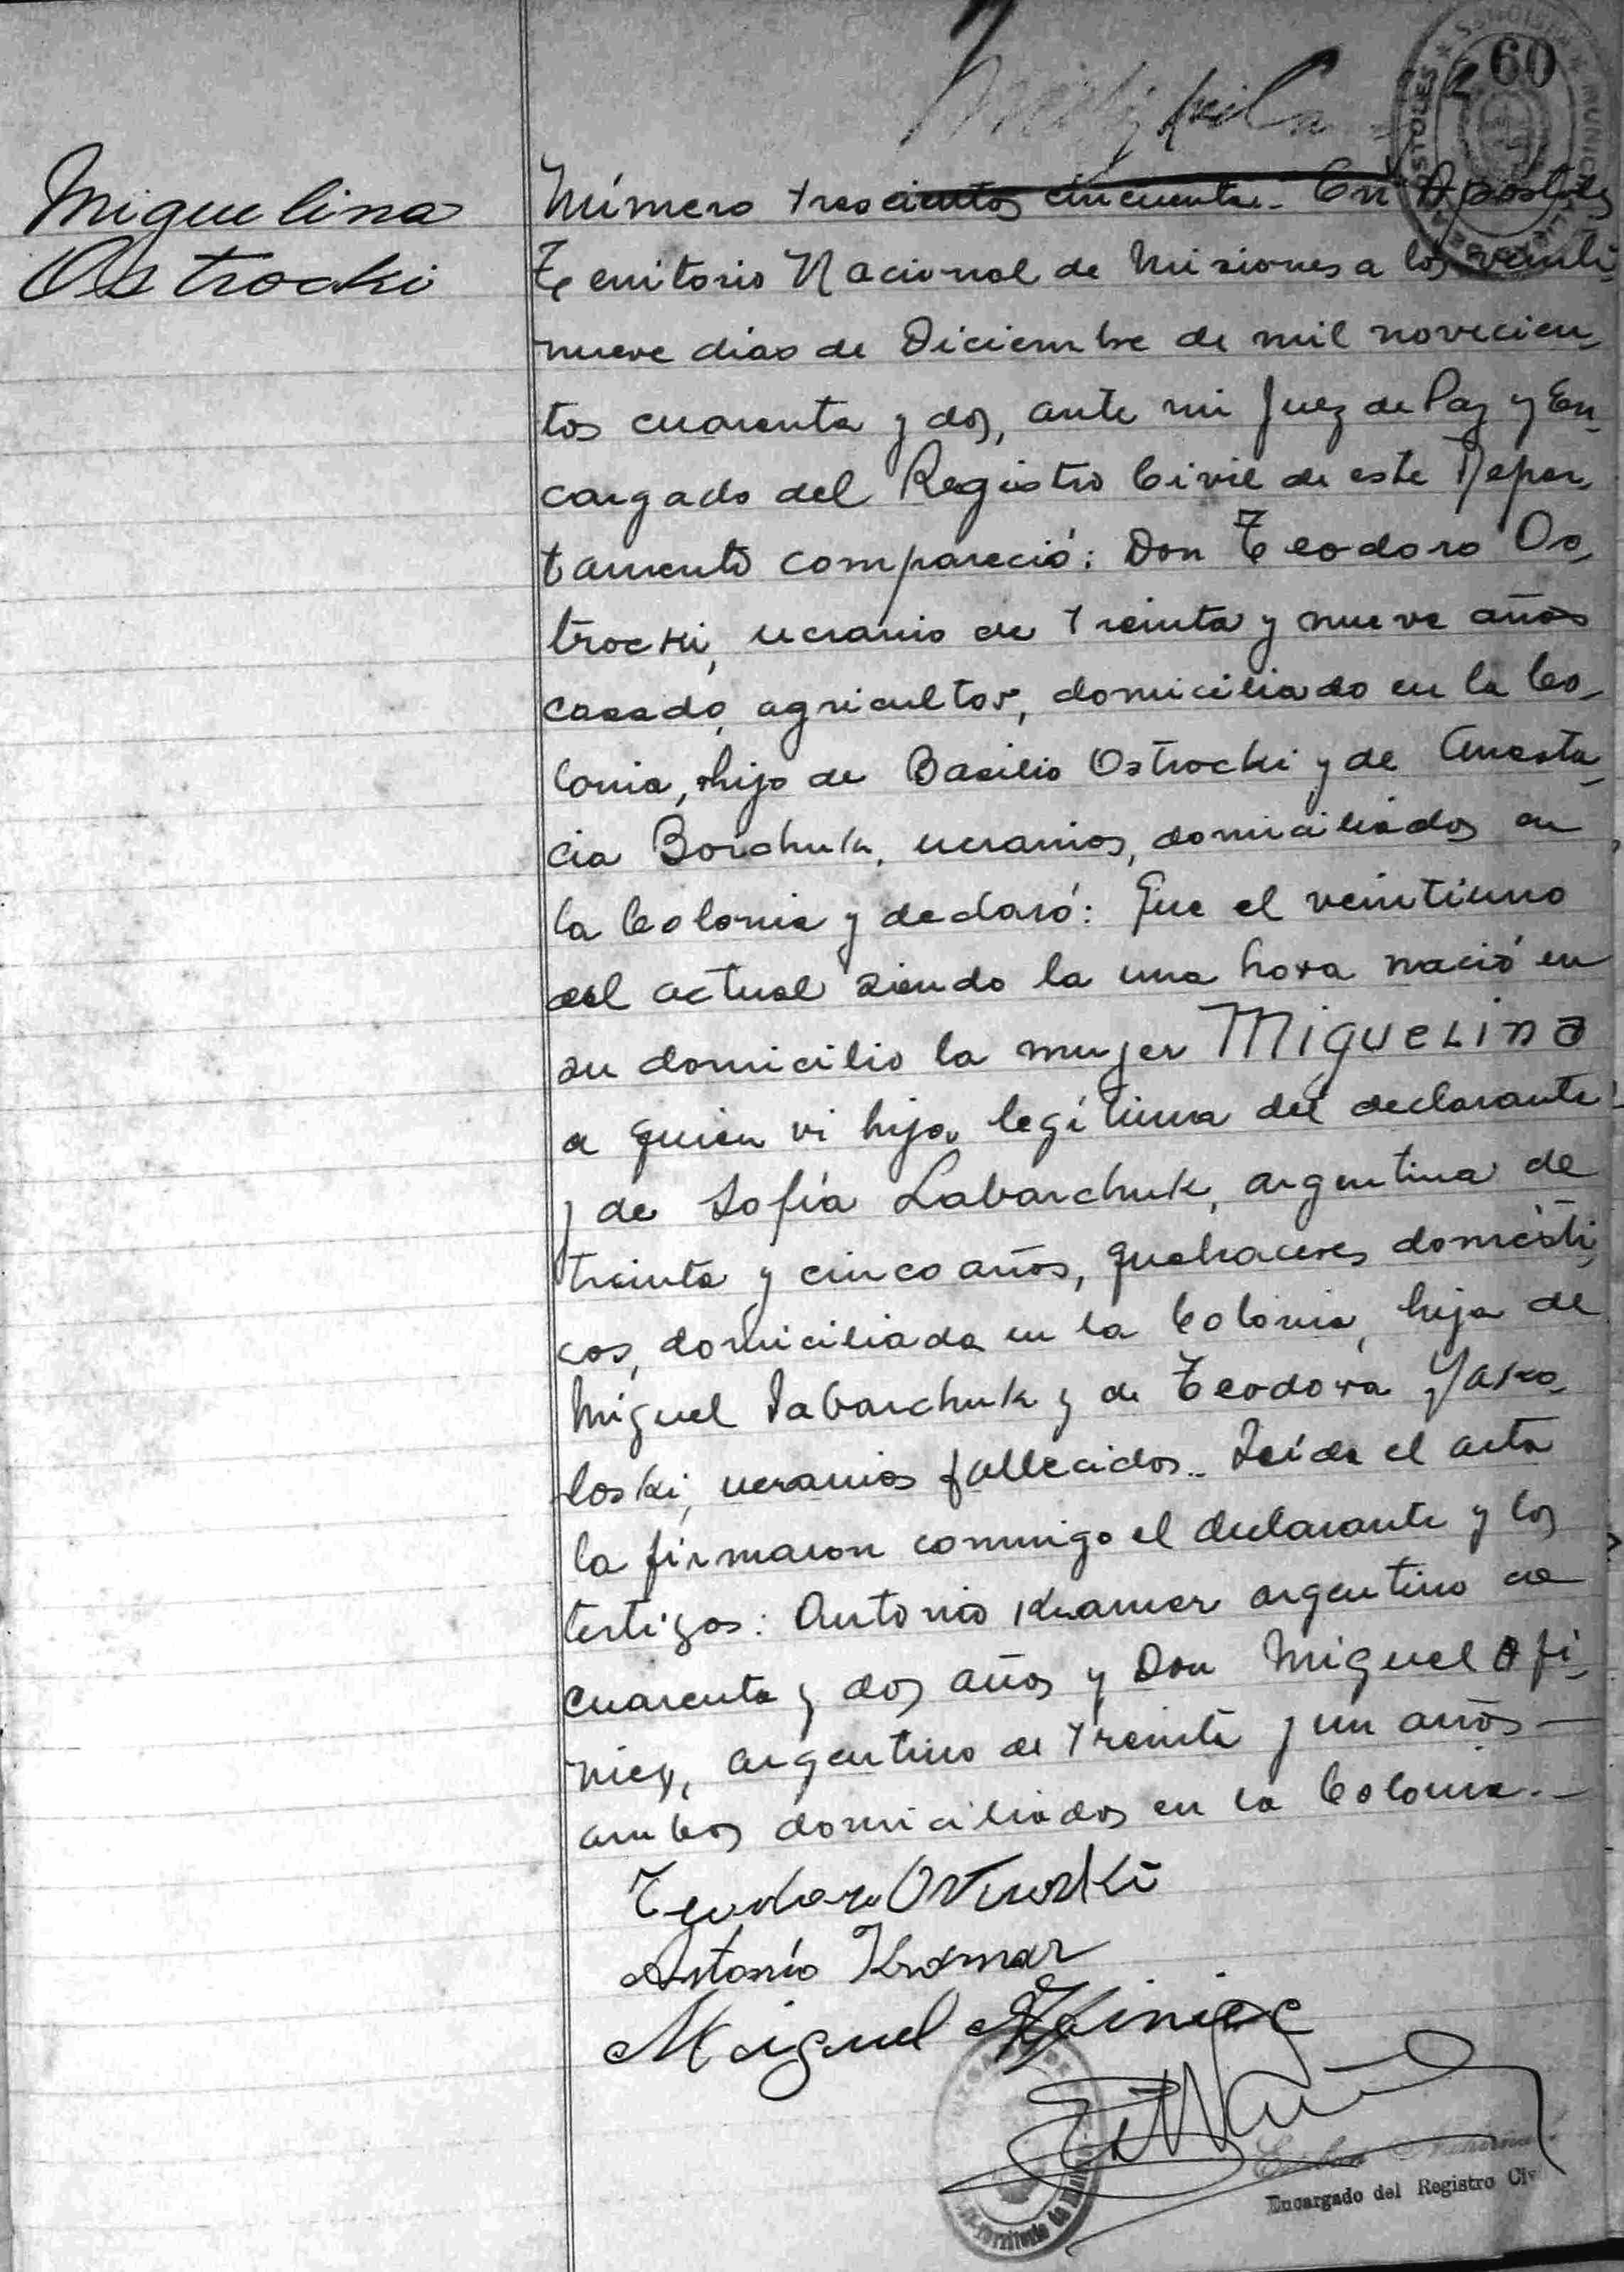 60
Miguelina
Ostrocki
Número trescientos cincuenta.- En Apostoles
Territorio Nacional de Misiones a los veinti
nueve dias de Diciembre de mil novecien-
tos cuarenta y dos, ante mi Juez de Paz y En-
cargado del Registro Civil de este Depar-
tamento compareció: Don Teodoro Os-
trocki, ucranio de treinta y nueve años
casado, agricultor, domiciliado en la Co-
lonia, hijo de Basilio Ostrocki y de Anesta-
cia Borchuk, ucranios, domiciliados en
la Colonia y declaró: Que el veintiuno
del actual siendo la una hora nació en
su domicilio la mujer MIGUELINA
a quien vi hija legítima del declarante
y de Sofía Labarchuk, argentina de
treinta y cinco años, quehaceres domésti-
cos, domiciliada en la Colonia, hija de
Miguel Labarchuk y de Teodora Yaso-
loski, ucranios fallecidos.- Leída el acta
la firmaron conmigo el declarante y los
testigos: Antonio Kramar argentino de
cuarenta y dos años y Don Miguel Afi-
niez, argentino de treinta y un años-
ambos domiciliados en la Colonia.-
Teodoro Ostrocki
Antonio Kramar
Miguel
Encargado del Registro Civ